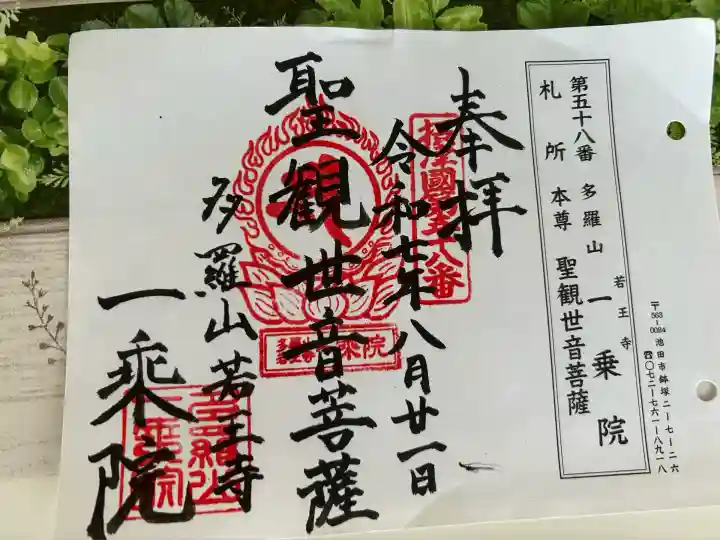 第五十八番 多羅山 若王寺 一乗院
札所本尊 聖観世音菩薩
〒563-0084 池田市鉢塚二-七-二六
☎〇七二-七六一-八九一八
奉拝
摂津國第五十八番
令和七年八月廿一日
聖観世音菩薩
多羅山若王寺
一乗院